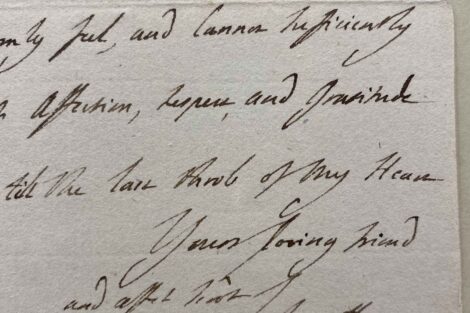 feel, and Cannot sufficiently
Affection, respect, and Gratitude
till the last throb of My Heart
Yours loving friend
and